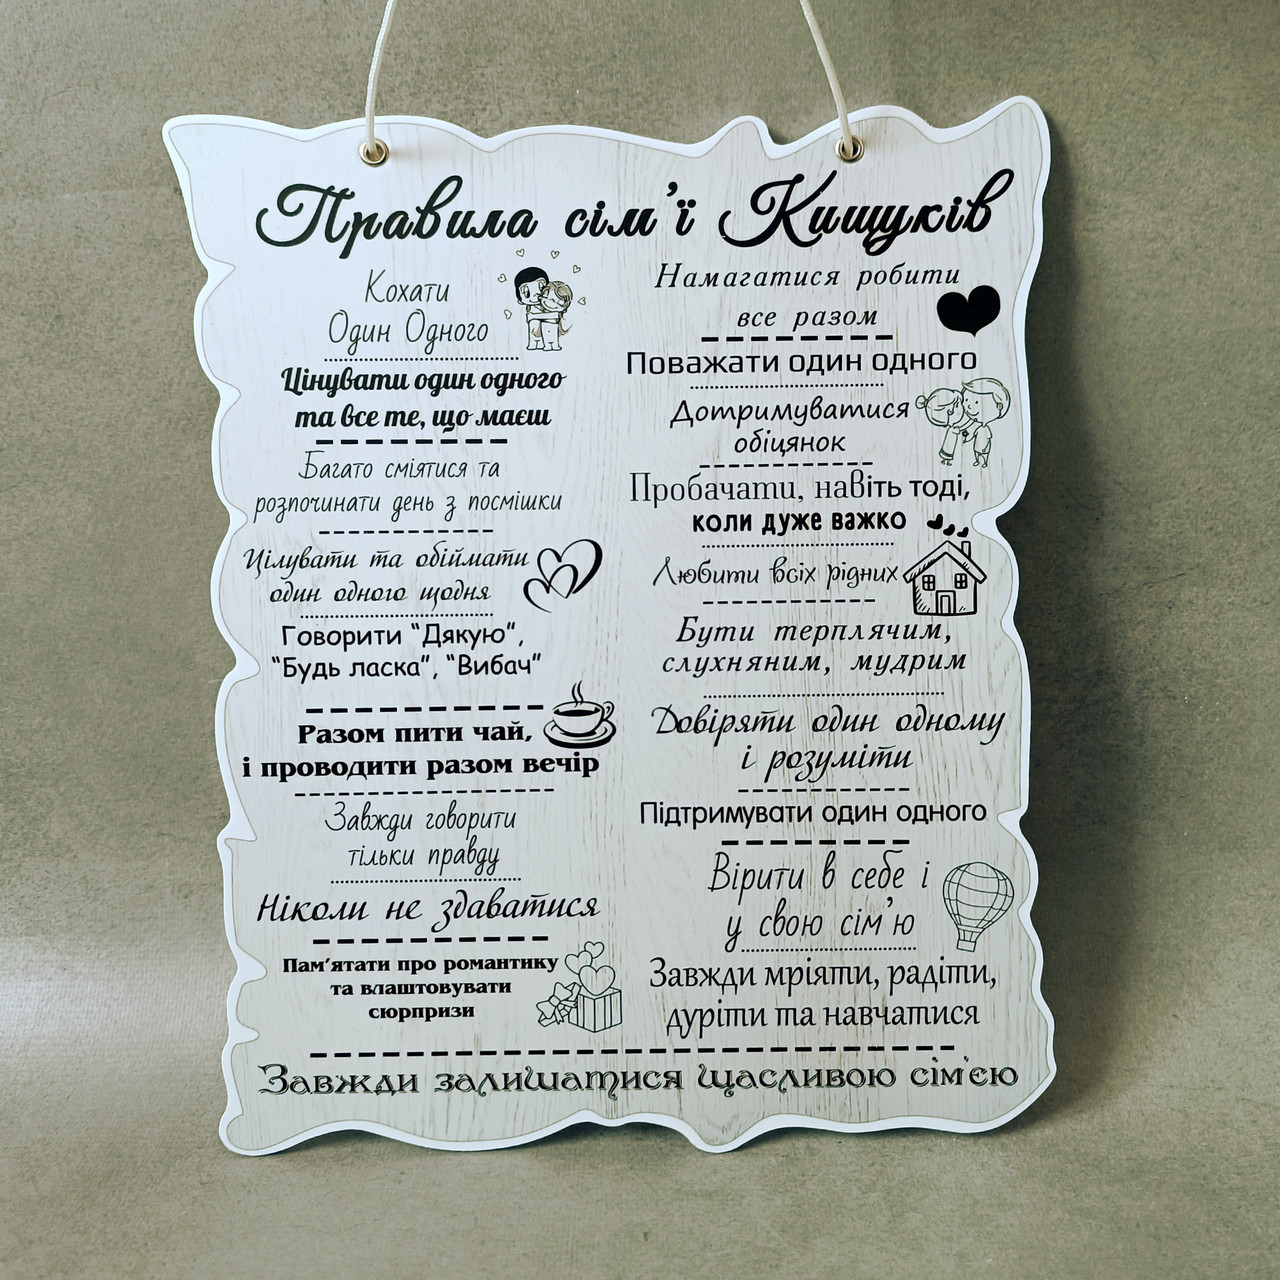 Правила сім'ї Кищуків
Кохати
Один Одного
Цінувати один одного
та все те, що маєш
Багато сміятися та
розпочинати день з посмішки
Цілувати та обіймати
один одного щодня
Говорити "Дякую",
"Будь ласка", "Вибач"
Разом пити чай,
і проводити разом вечір
Завжди говорити
тільки правду
Ніколи не здаватися
Пам'ятати про романтику
та влаштовувати
сюрпризи
Намагатися робити
все разом
Поважати один одного
Дотримуватися
обіцянок
Пробачати, навіть тоді,
коли дуже важко
Любити всіх рідних
Бути терплячим,
слухняним, мудрим
Довіряти один одному
і розуміти
Підтримувати один одного
Вірити в себе і
у свою сім'ю
Завжди мріяти, радіти,
дуріти та навчатися
Завжди залишатися щасливою сім'єю